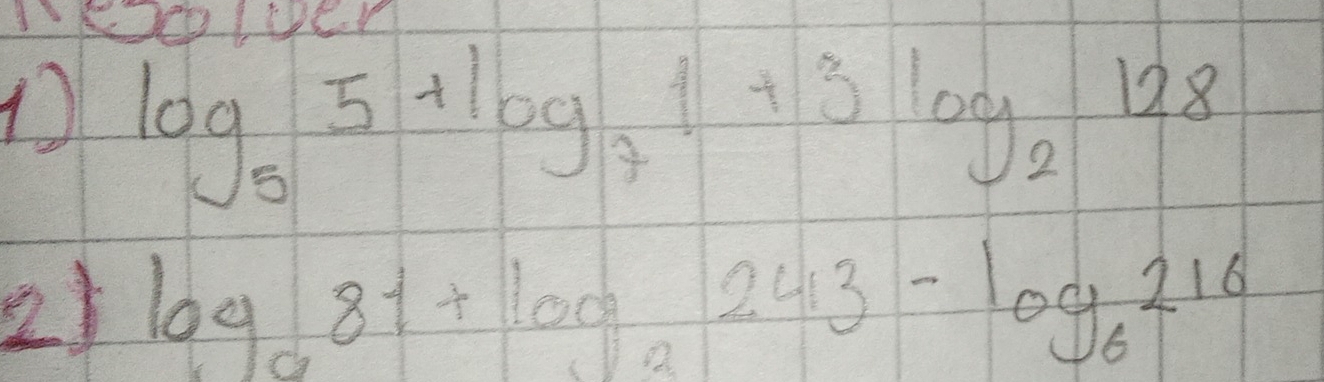 Resolver
1) log₅ 5 + log₇ 1 + 3 log₂ 128
2) log₉ 81 + log 243 - log₆ 216